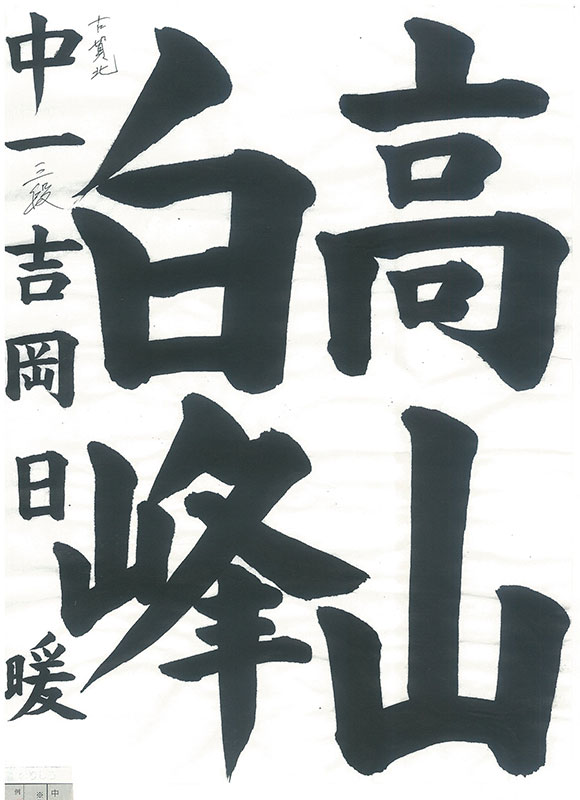 高山
白峰
中一 吉岡日暖
古賀北
三段
例 ※ 中